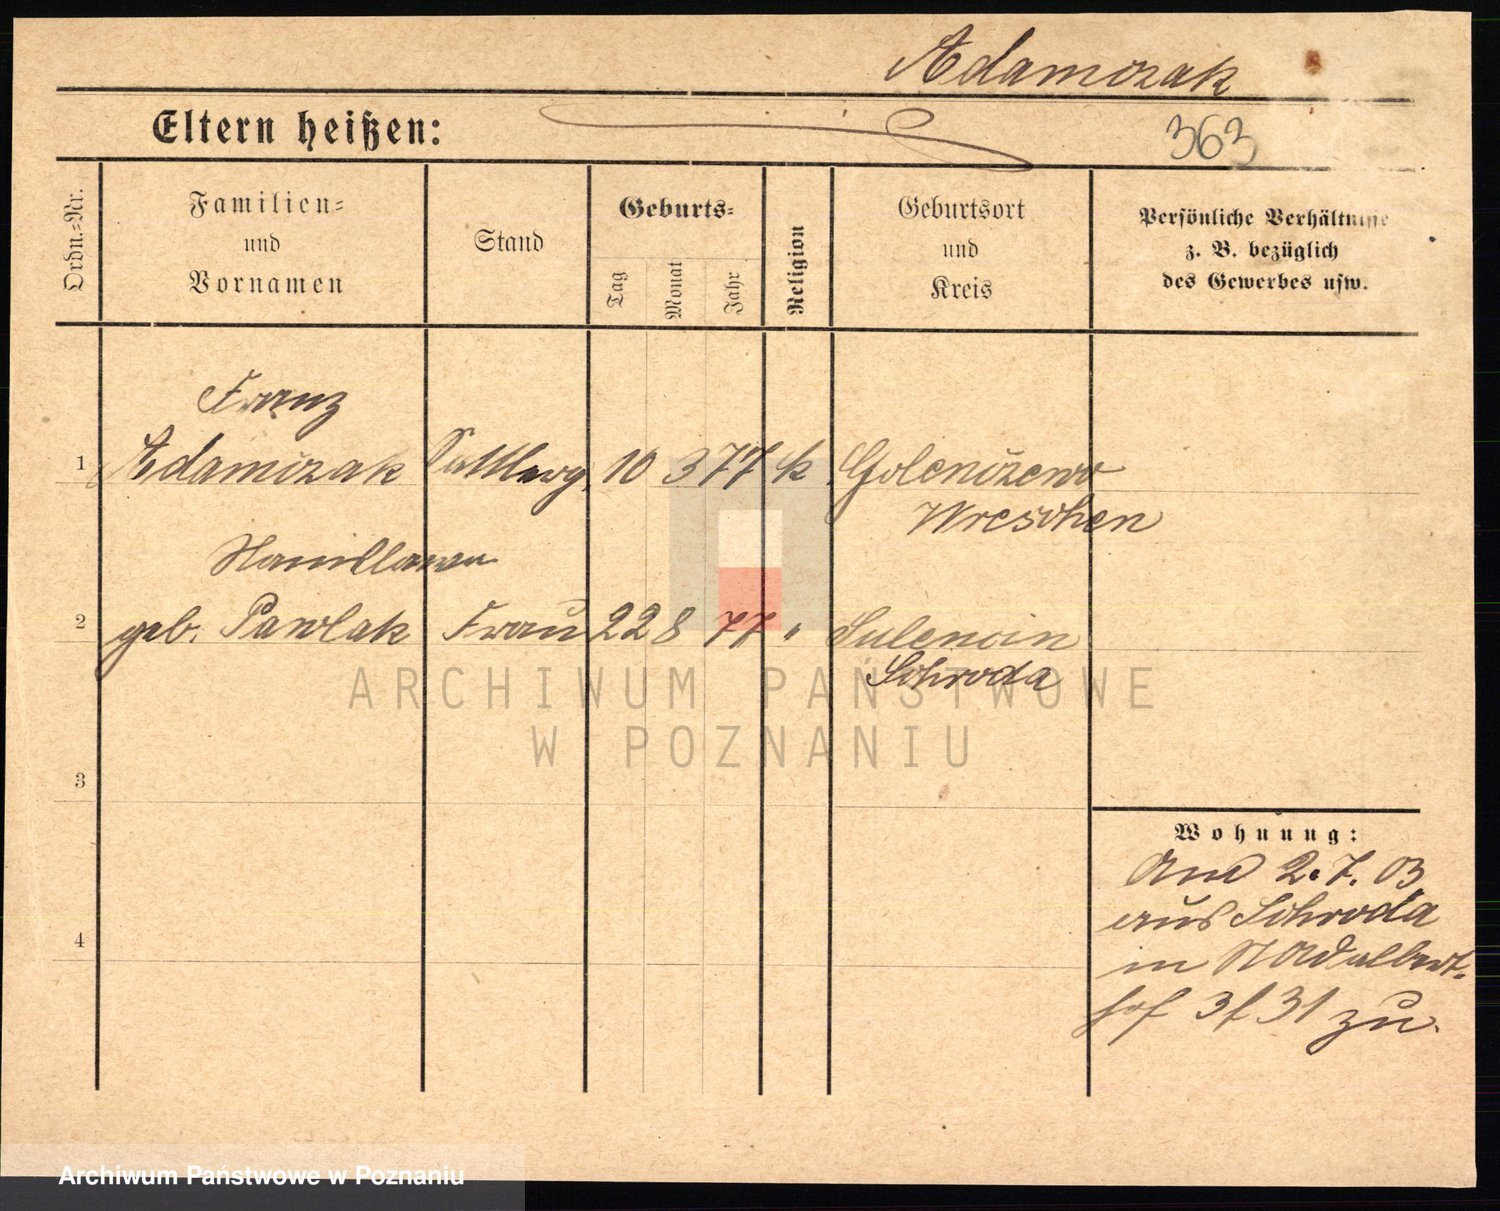 Adamczak
Eltern heißen:
363
Ordn.-Nr.
Familien-
und
Vornamen
Stand
Geburts-
Tag
Monat
Jahr
Religion
Geburtsort
und
Kreis
Persönliche Verhältnisse
z. B. bezüglich
des Gewerbes usw.
Franz
1 Adamczak Sattlerg. 10 3 77 k Golenczewo
Wreschen
Stanislawa
2 geb. Pawlak Frau 22 8 77 " Sulencin
Schroda
3
4
Wohnung:
Am 2.7.03
aus Schroda
in St Adalbert-
hof 31 zu
ARCHIWUM PAŃSTWOWE
W POZNANIU
Archiwum Państwowe w Poznaniu